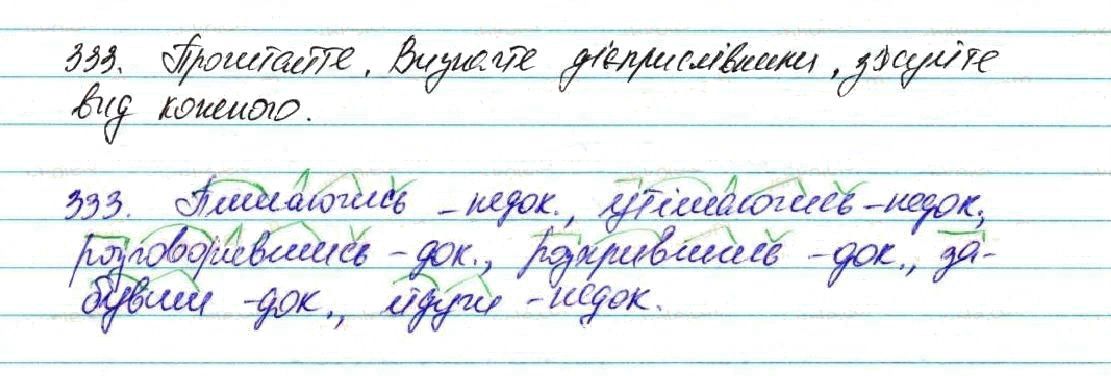 333. Прочитайте. Визначте дієприслівники, з'ясуйте
вид кожного.
333. Пишаючись – недок., утішаючись – недок.,
розговорившись – док., розкрившись – док., за-
бувши – док., йдучи – недок.